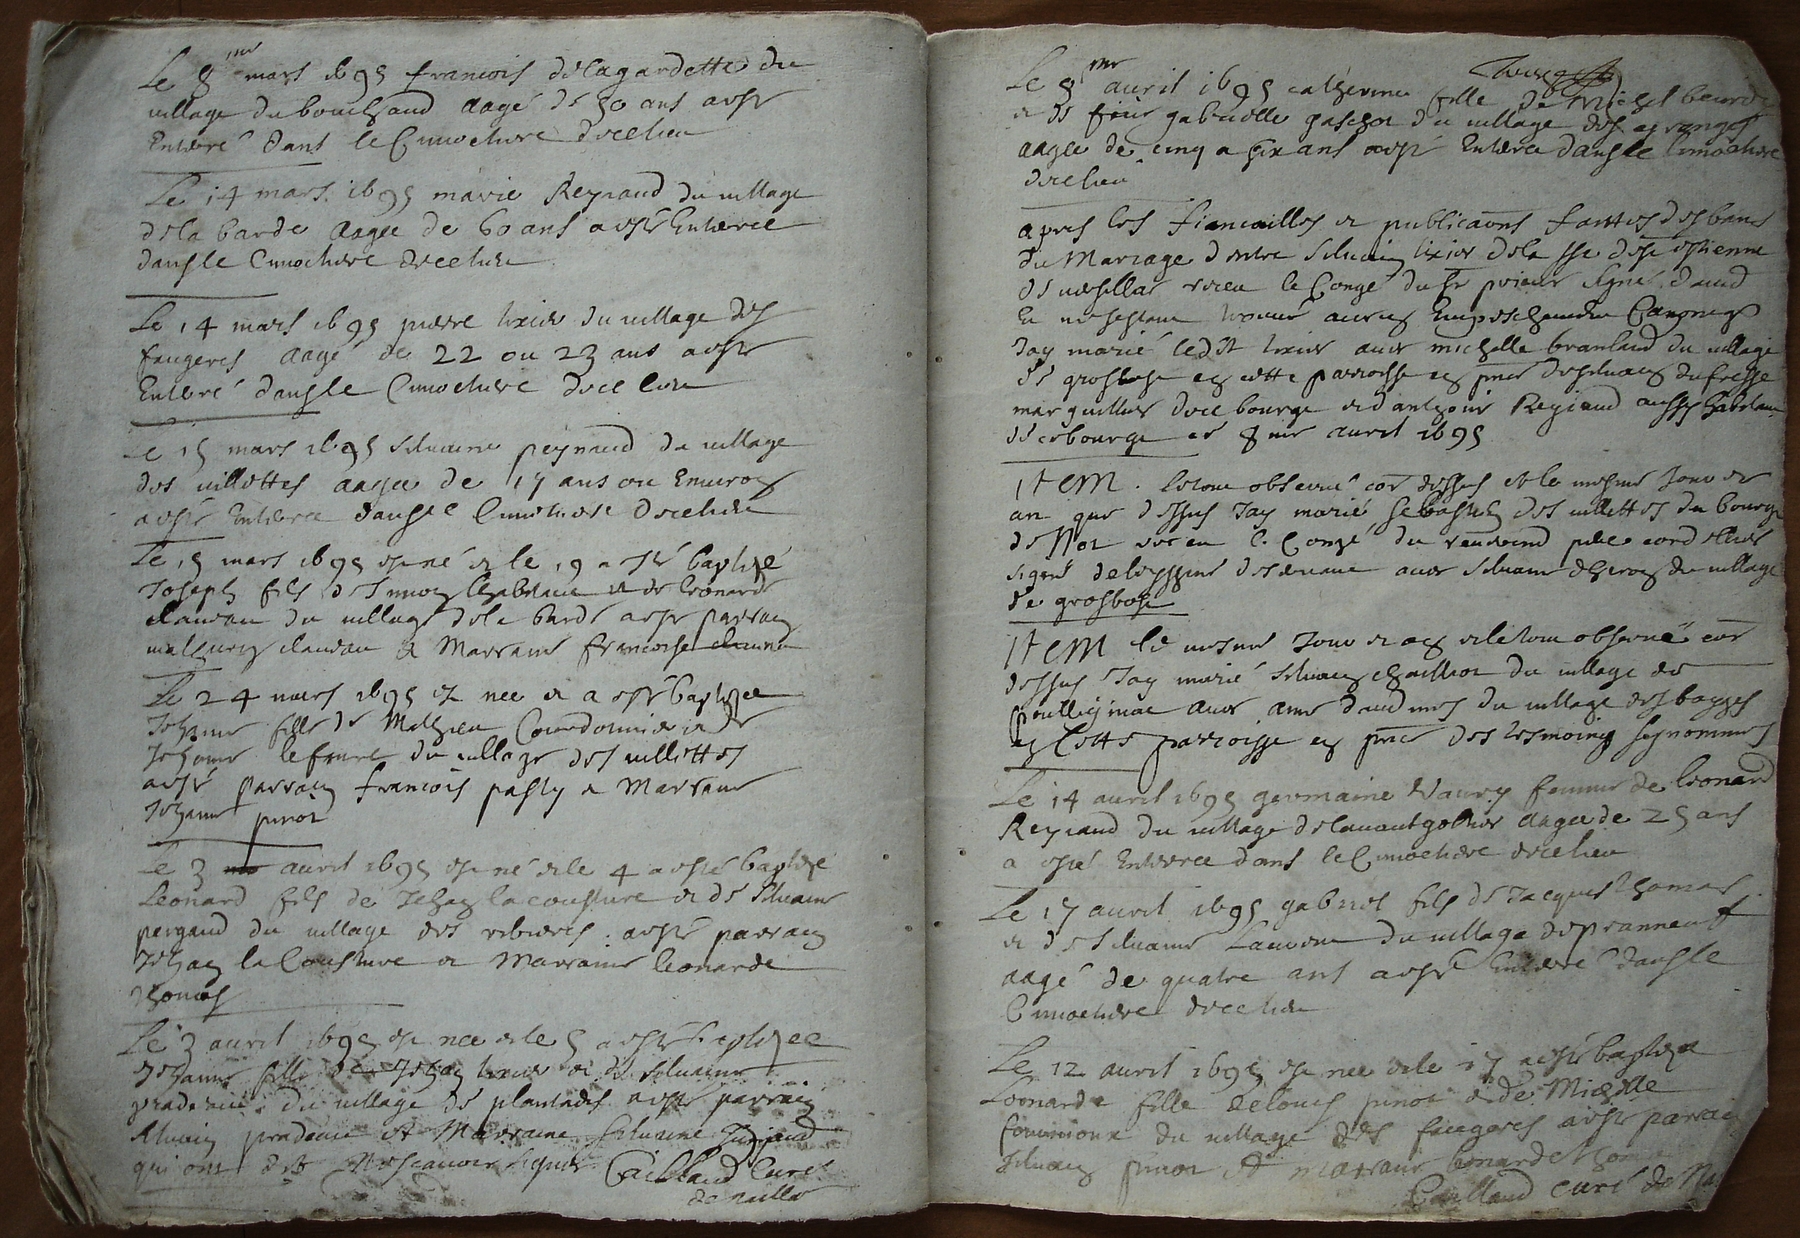 Le 8me mars 1695 francois delagardette du
village du bouchaud aagé de 50 ans a esté
Enterré dans le Cimetiere de ce lieu
Le 14 mars 1695 marie Reynaud du village
de la barde aagee de 60 ans a esté Enterree
dans le Cimetiere de ce lieu
Le 14 mars 1695 pierre tixier du village des
faugeres aagé de 22 ou 23 ans a esté
Enterré dans le Cimetiere de ce lieu
Le 15 mars 1695 silvaine peynaud du village
des villettes aagee de 17 ans ou Environ
a esté Enterree dans le Cimetiere de ce lieu
Le 15 mars 1695 est né et le 19 a esté baptizé
Joseph fils de et de leonarde
du village de la barde a esté parrain
et Marraine francoise
Le 24 mars 1695 est nee et a esté baptizee
Jehanne fille de Mathieu Courdounier et de
Jehanne lefaure du village des villettes
a esté parrain francois pasty et Marraine
Jehanne pinot
Le 3 avril 1695 est né et le 4 a esté baptizé
Leonard fils de Jehan lacousture et de silvaine
pergaud du village des ribieres a esté parrain
Jehan la Cousture et Marraine leonarde
thomas
Le 3 avril 1695 est nee et le 5 a esté baptizee
Jehanne fille de Jehan tixier et de silvaine
du village de plantadis a esté parrain
silvain et Marraine silvaine
qui ont dit ne scavoir signer Caillaud Curé
de naillat
Le 8me avril 1695 catherine fille de Michel
et de feue gabrielle du village des
aagee de cinq a six ans a esté Enterree dans le Cimetiere
de ce lieu
apres les fiancailles et publicaons faittes des bans
du Mariage d entre silvain tixier de la de st estienne
de versillat veu le Congé du sr prieur signé daud
et ne sestant trouvé aucun Empeschement Canonique
Jay marié ledit tixier avec michelle branlaud du village
de grosbost en cette parroisse en pnce de silvain dufresse
marguillier de ce bourg et danthoine Reynaud aussy habitant
de ce bourg ce 8me avril 1695
ITEM . observé coe dessus et le mesme Jour et
an que dessus Jay marié sebastien des villettes du bourg
de Not veu le Congé du
signé avec silvaine du village
de grosbost
ITEM le mesme Jour et an et le tout observé coe
dessus Jay marié silvain chailliot du village de
avec anne du village des
en Cette parroisse en pnce des tesmoins susnommes
Le 14 avril 1695 germaine Vaury femme de leonard
Reynaud du village de aagee de 25 ans
a esté Enterree dans le Cimetiere de ce lieu
Le 17 avril 1695 gabriel fils de Jacques thomas
et de silvaine du village de
aagé de quatre ans a esté Enterré dans le
Cimetiere de ce lieu
Le 12 avril 1695 est nee et le 17 a esté baptizee
Leonarde fille de louis pinot et de Michelle
du village des faugeres a esté parrain
silvain pinot et marraine leonarde thoma
Caillaud curé de Na